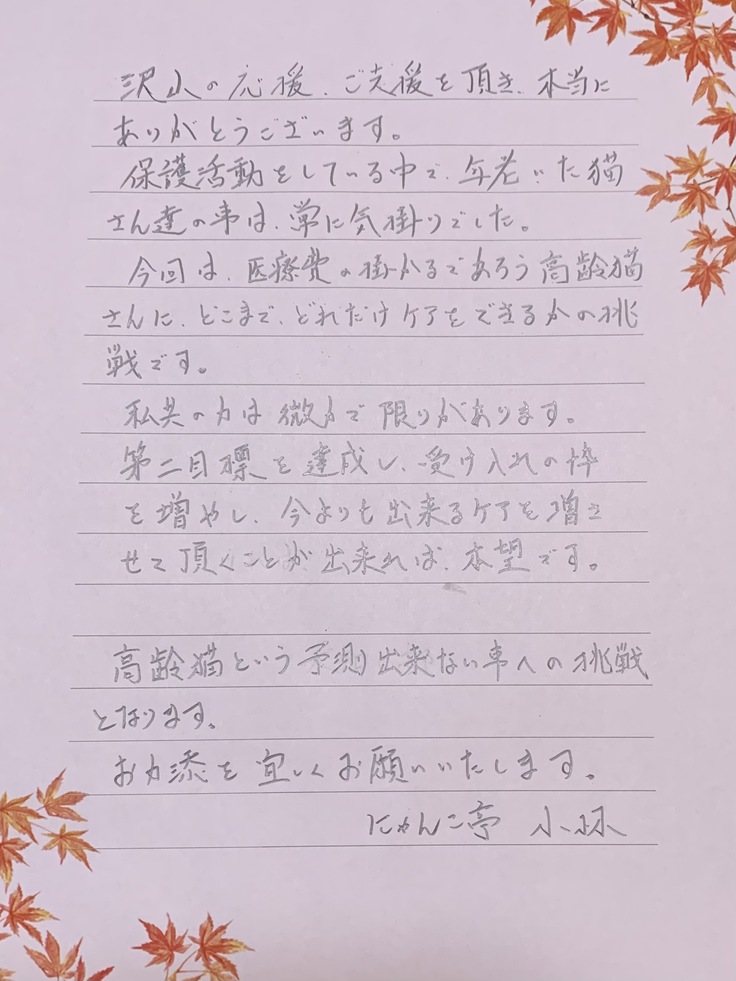 沢山の応援、ご支援を頂き、本当に
ありがとうございます。
保護活動をしている中で、年老いた猫
さん達の事は、常に気掛りでした。
今回は、医療費の掛かるであろう高齢猫
さんに、どこまで、どれだけケアをできるかの挑
戦です。
私共の力は微力で限りがあります。
第二目標を達成し、受け入れの枠
を増やし、今よりも出来るケアを増さ
せて頂くことが出来れば、本望です。
高齢猫という予測出来ない事への挑戦
となります。
お力添を宜しくお願いいたします。
にゃんこ亭 小林